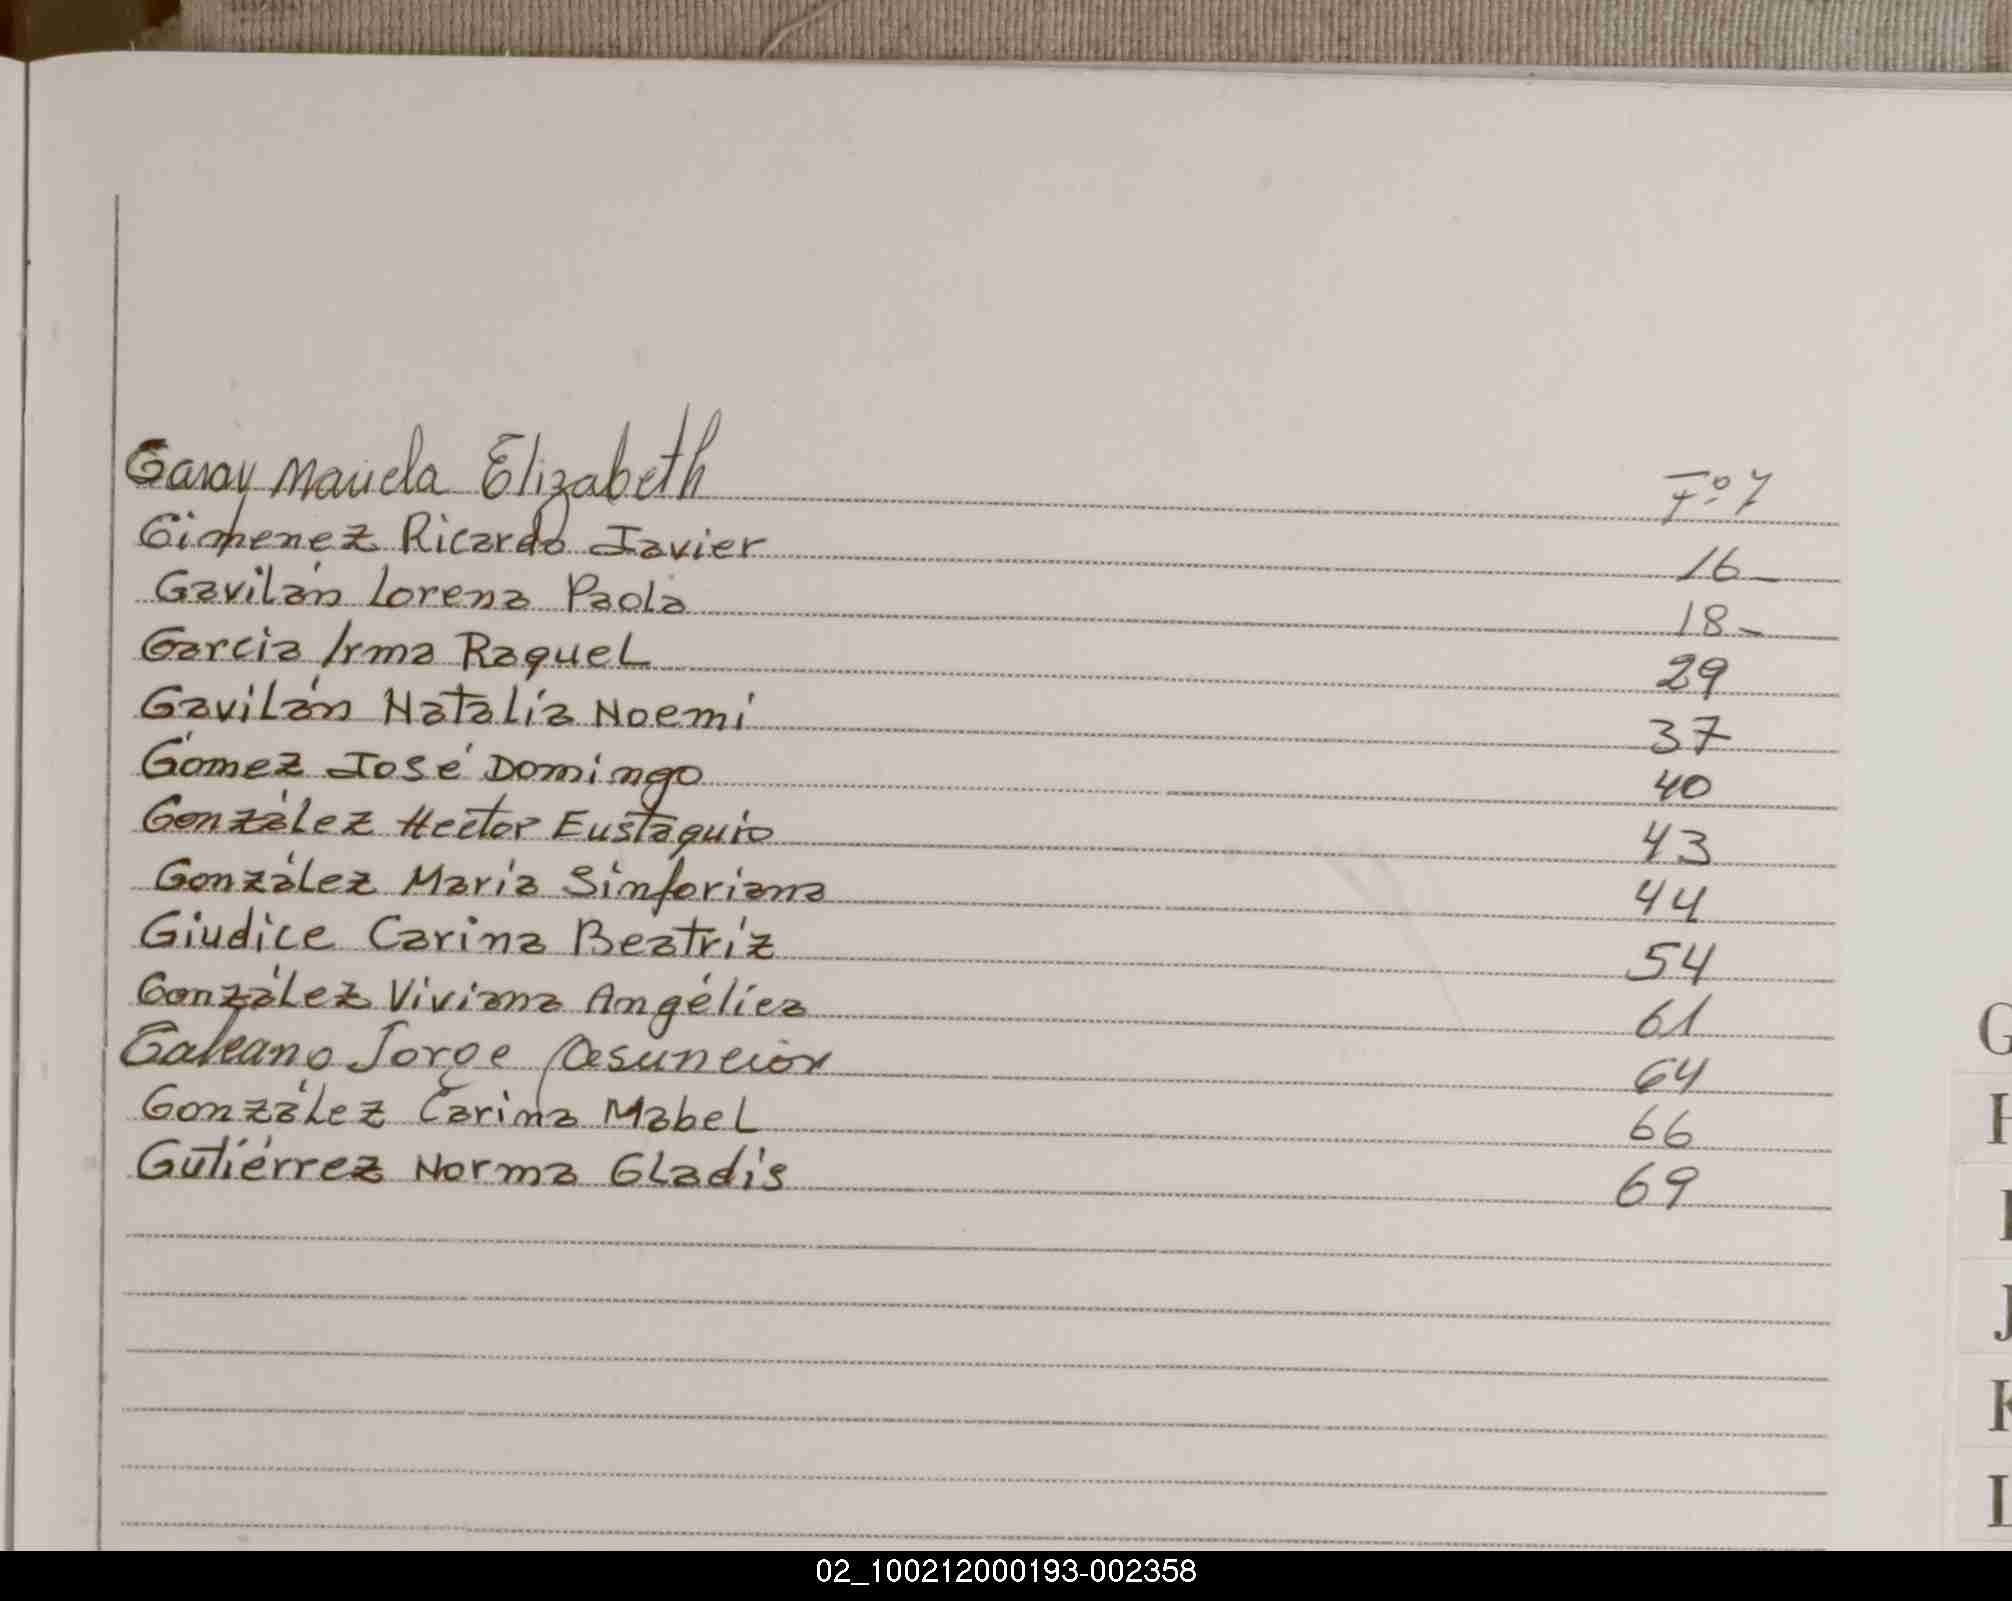 Garay Mauela Elizabeth Fº 7
Gimenez Ricardo Javier 16-
Gavilán Lorena Paola 18-
Garcia Irma Raquel 29
Gavilán Natalia Noemi 37
Gómez José Domingo 40
González Hector Eustaquio 43
González Maria Sinforiana 44
Giudice Carina Beatriz 54
González Viviana Angélica 61
Galeano Jorge Asuncion 64
González Carina Mabel 66
Gutiérrez Norma Gladis 69
G
H
I
J
K
L
02_100212000193-002358